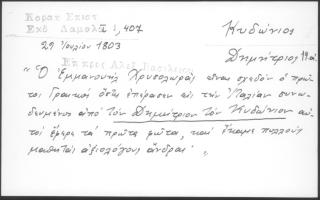 Κοραη Επιστ
Εκδ Δαμαλᾶ Ι, 407
Κυδώνιος
29 Ἰουλίου 1803
Δημήτριος
Επ προς Αλεξ Βασιλειου
"Ὁ Ἐμμανουήλ Χρυσολωρᾶς εἶναι σχεδόν ὁ πρῶ-
τος Γραικός ὅστις ἐπέρασεν εἰς την Ἰταλίαν συνω-
δευμένος ἀπό τόν Δημήτριον τόν Κυδώνιον αὐ-
τοί ἔφεραν τά πρῶτα φῶτα, καί ἔκαμαν πολλούς
μαθητάς ἀξιολόγους ἄνδρας"